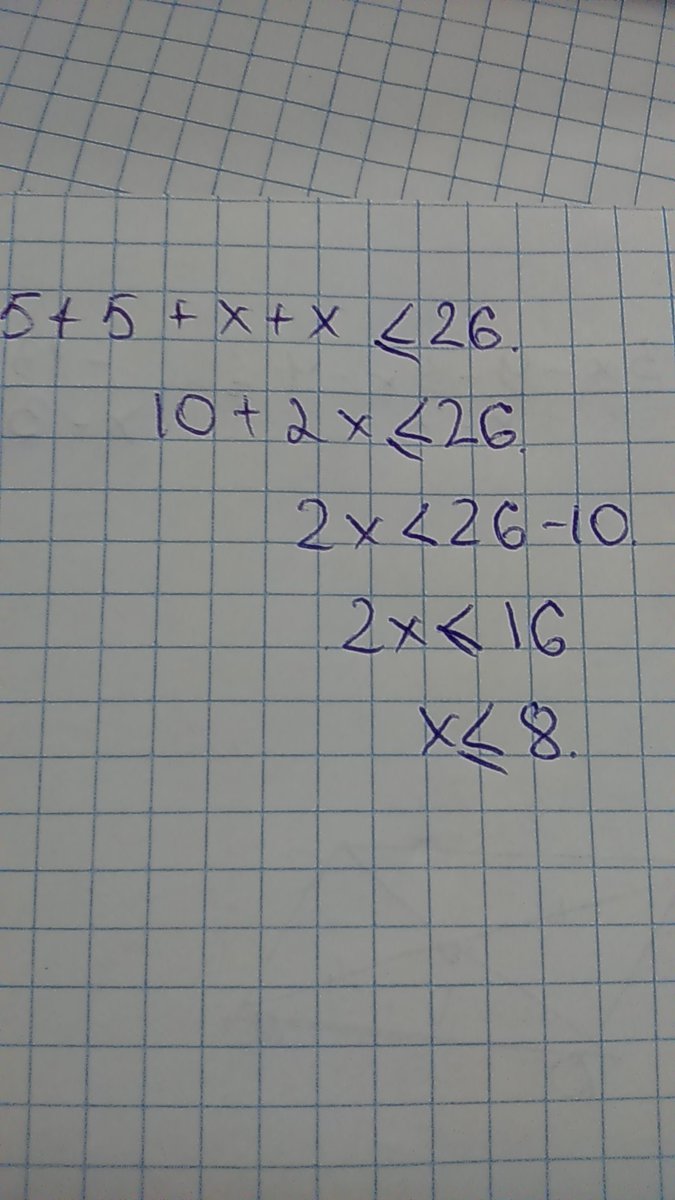 5+5+x+x ≤ 26.
10+2x ≤ 26.
2x < 26-10.
2x ≤ 16
x ≤ 8.